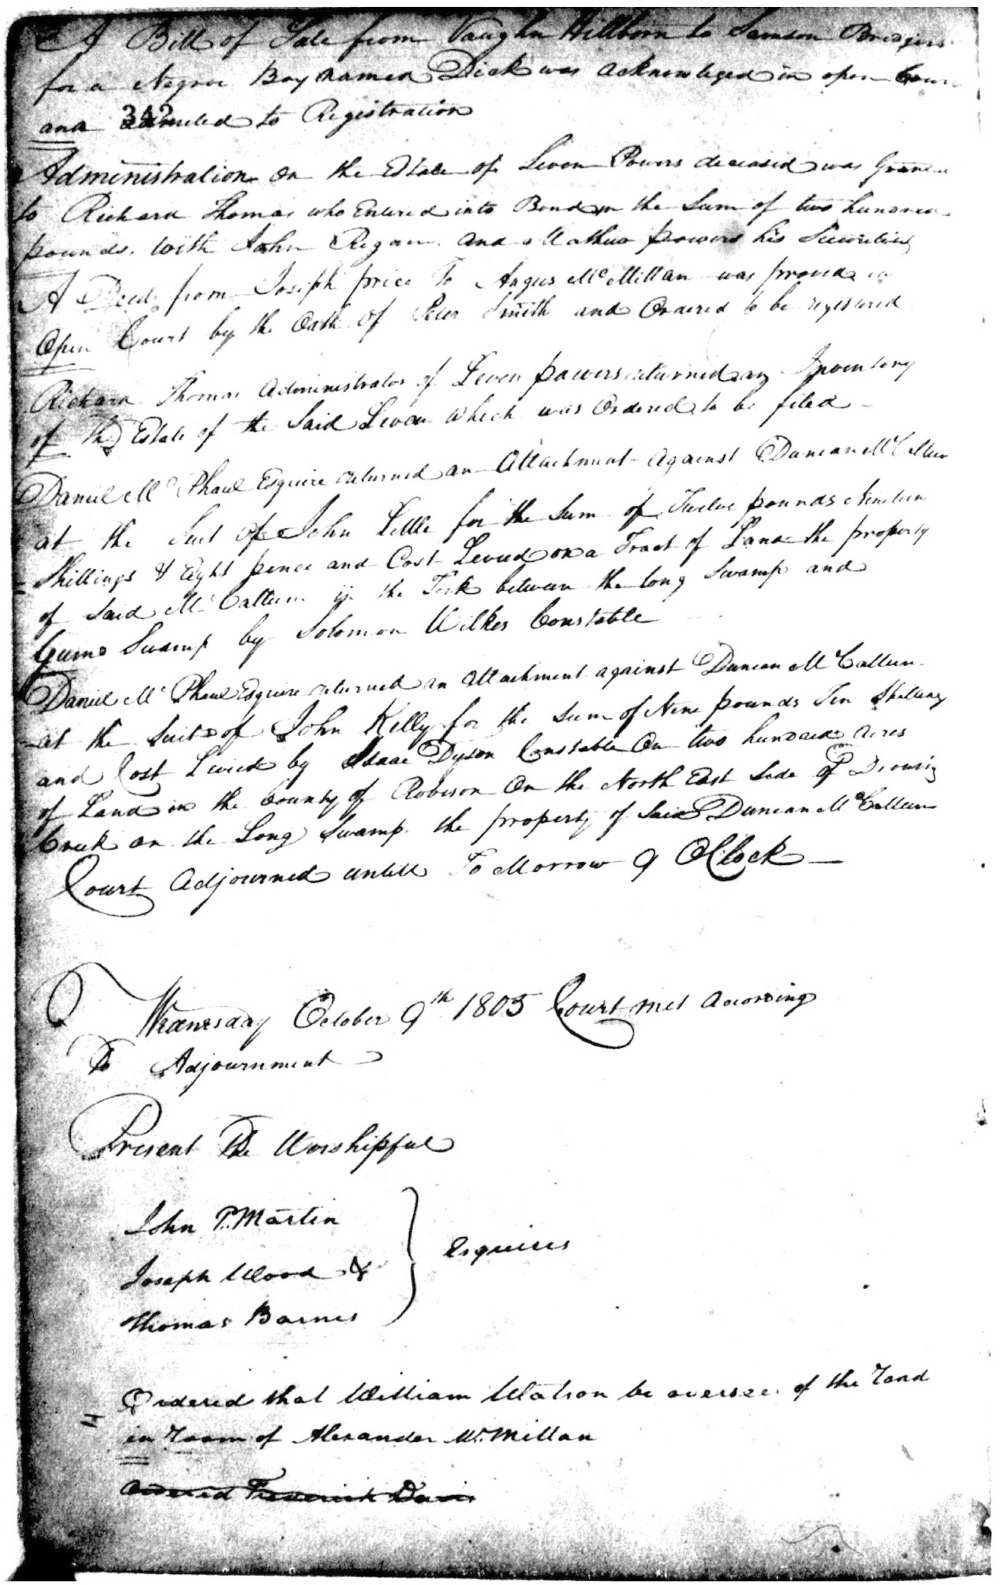 A Bill of Sale from Vaughn Hillborn to Samson Bridgers
for a Negroe Boy named Dick was acknowleged in open Court
and admited to Registration
342
Administration on the Estate of Leven Powers deceased was Granted
to Richard Thomas who Entered into Bond in the Sum of two hundred
pounds. with John Regan and Mathew powers his Securities
A Deed from Joseph price To Angus McMillan was proved in
Open Court by the Oath of Peter Smith and Ordered to be registered
Richard Thomas Administrator of Leven powers returned an Inventory
of the Estate of the Said Leven which was Ordered to be filed
Daniel Mc Phaul Esquire returned an Attachment Against Duncan McCallum
at the Suit of John Little for the Sum of Twelve pounds Nineteen
Shillings & Eight pence and Cost Levied on a Tract of Land the property
of Said McCallum in the Fork between the long Swamp and
Gum Swamp by Solomon Wilkes Constable
Daniel Mc Phaul Esquire returned an Attachment against Duncan McCallum
at the Suit of John Kelly for the Sum of Nine pounds Ten Shillings
and Cost Levied by Isaac Dyson Constable On two hundred Acres
of Land in the County of Robeson On the North East Side of Drowning
Creek on the Long Swamp the property of Said Duncan McCallum
Court Adjourned untill To Morrow 9 OClock
Wednesday October 9th 1805 Court met According
To Adjournment
Present The Worshipful
John P. Martin
Joseph Wood &
Thomas Barnes
Esquires
Ordered that William Watson be overseer of the Road
in room of Alexander McMillan
Ordered Frederick Davis